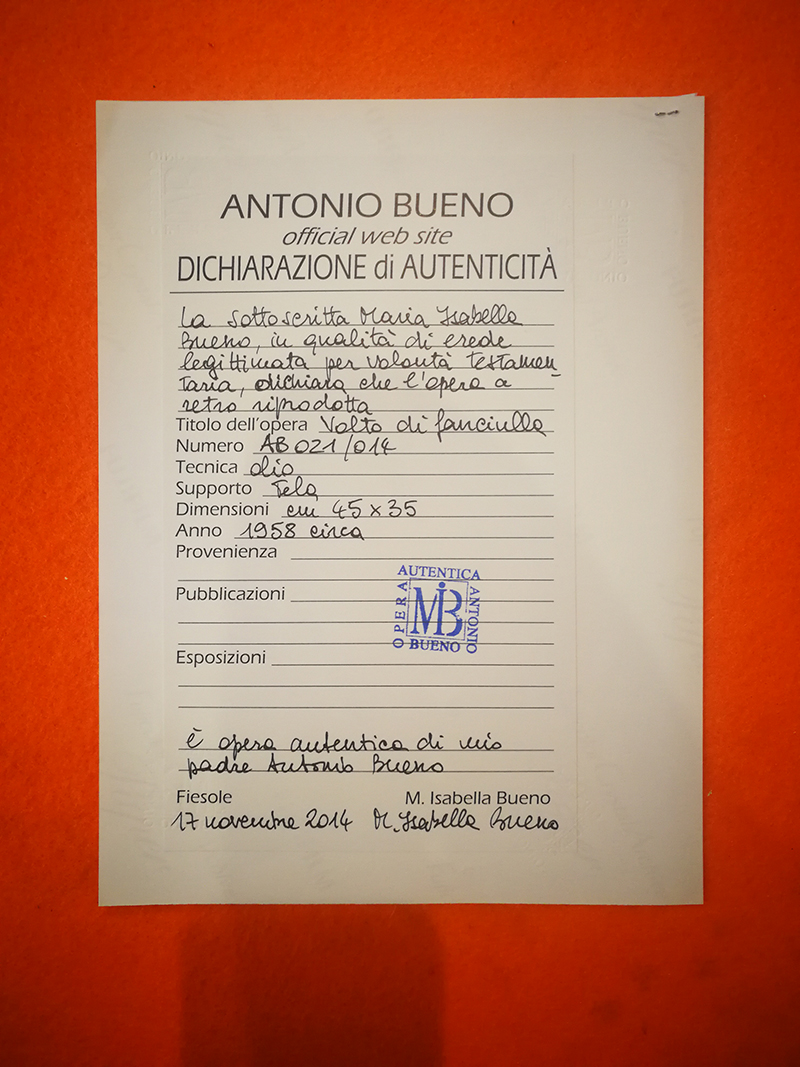 ANTONIO BUENO
official web site
DICHIARAZIONE di AUTENTICITÀ
La sottoscritta Maria Isabella
Bueno, in qualità di erede
legittimata per volontà testamen-
taria, dichiara che l'opera a
retro riprodotta
Titolo dell'opera Volto di fanciulla
Numero AB 021/014
Tecnica olio
Supporto Tela
Dimensioni cm 45 x 35
Anno 1958 circa
Provenienza
Pubblicazioni
AUTENTICA
OPERA
MIB
ANTONIO
BUENO
Esposizioni
è opera autentica di mio
padre Antonio Bueno
Fiesole M. Isabella Bueno
17 novembre 2014 M. Isabella Bueno